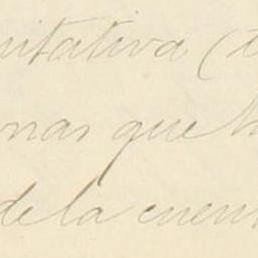 uitativa (
nas que
de la cuen